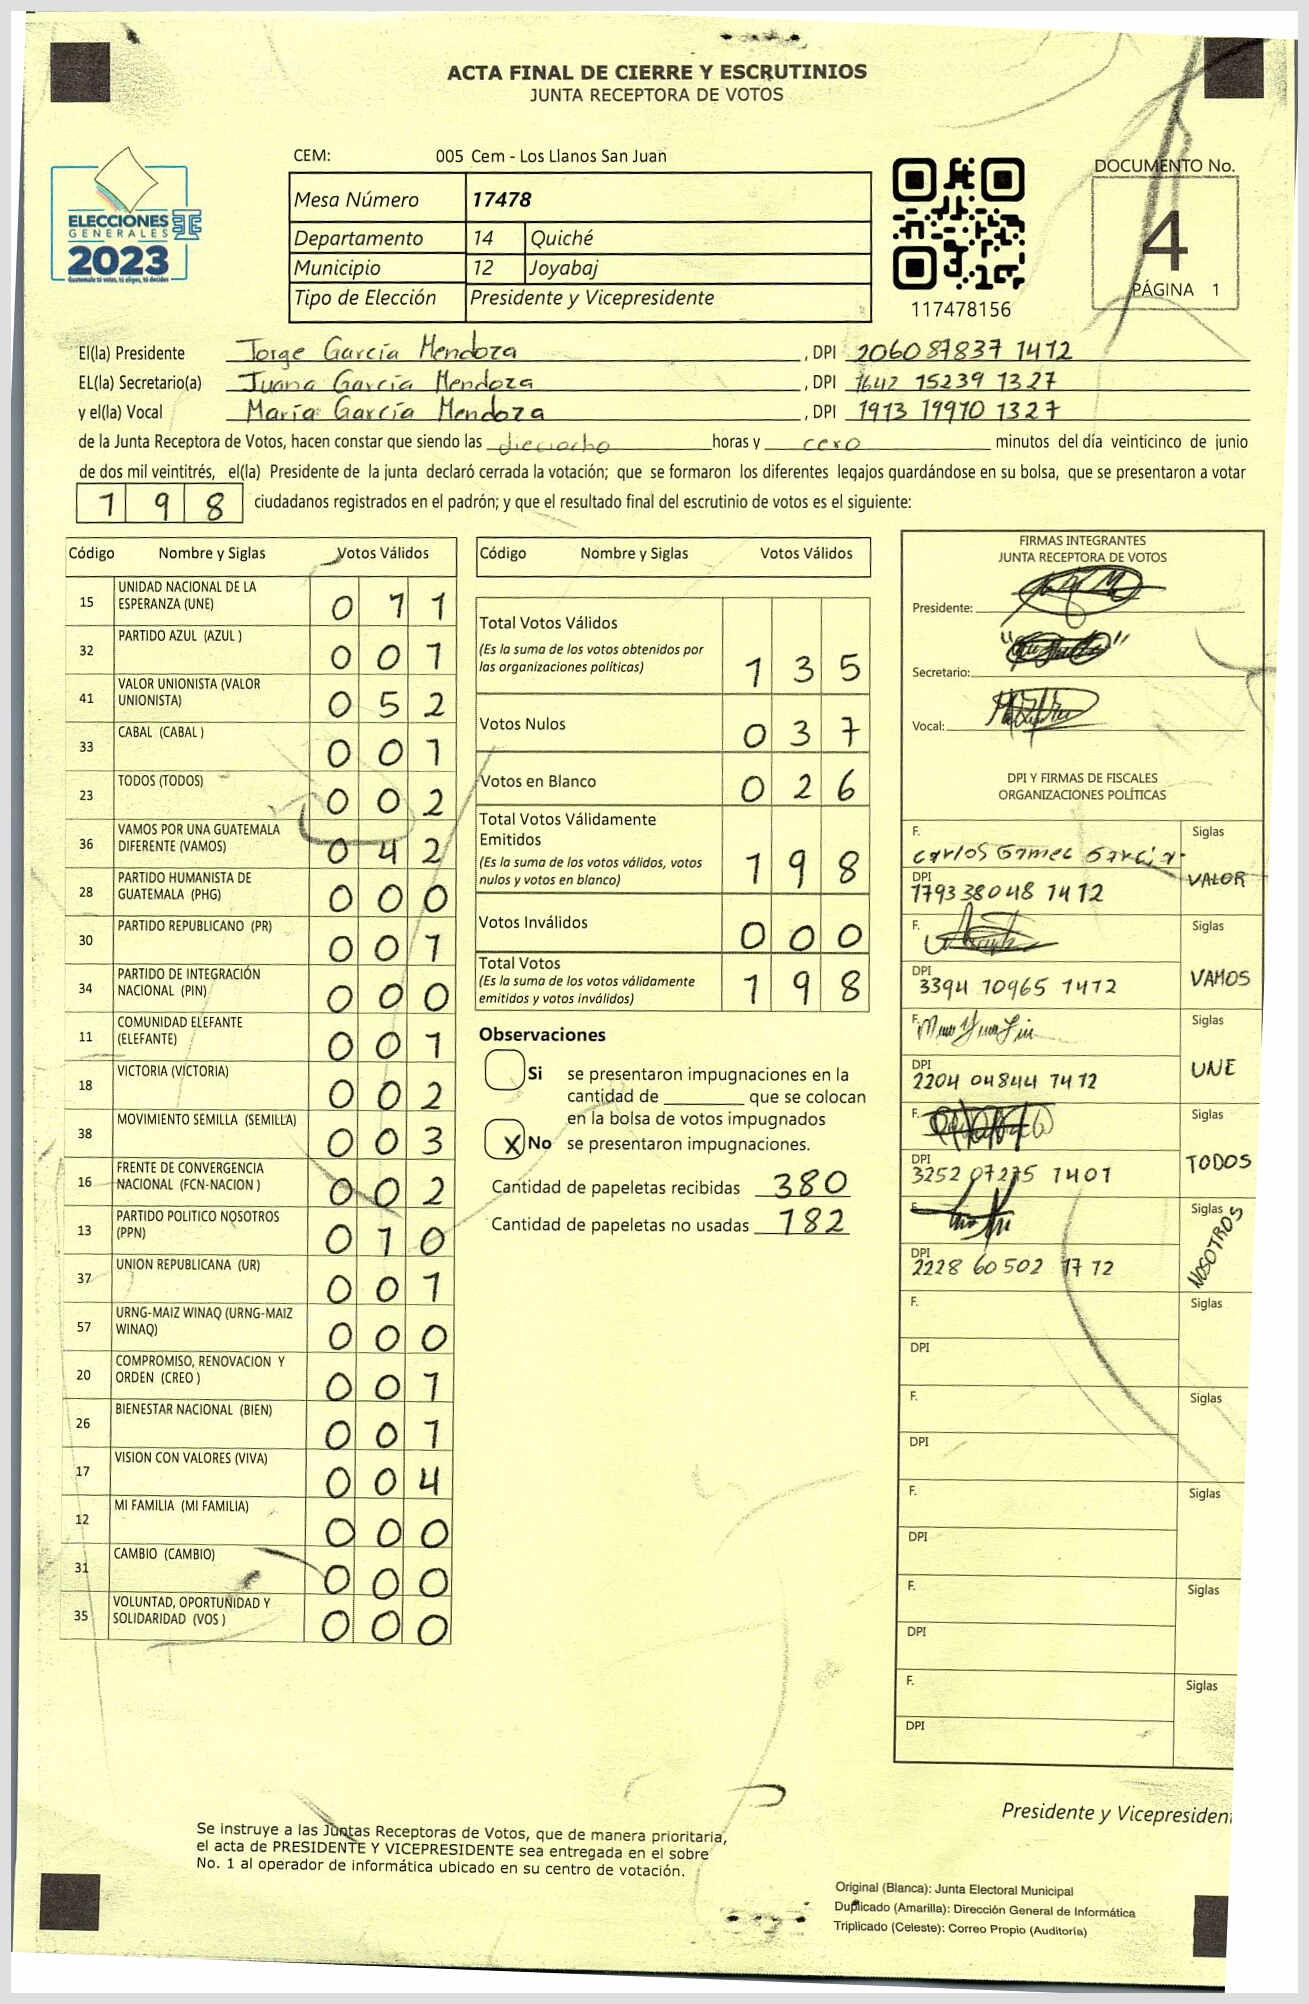 ACTA FINAL DE CIERRE Y ESCRUTINIOS
JUNTA RECEPTORA DE VOTOS
CEM: 005 Cem - Los Llanos San Juan
ELECCIONES
GENERALES
2023
Guatemala tú votas, tú eliges, tú decides
Mesa Número 17478
Departamento 14 Quiché
Municipio 12 Joyabaj
Tipo de Elección Presidente y Vicepresidente
117478156
DOCUMENTO No.
4
PÁGINA 1
El(la) Presidente Jorge García Mendoza , DPI 206087837 1412
EL(la) Secretario(a) Juana García Mendoza , DPI 1642 15239 1327
y el(la) Vocal María García Mendoza , DPI 1913 19910 1327
de la Junta Receptora de Votos, hacen constar que siendo las dieciocho horas y cero minutos del día veinticinco de junio
de dos mil veintitrés, el(la) Presidente de la junta declaró cerrada la votación; que se formaron los diferentes legajos guardándose en su bolsa, que se presentaron a votar
198 ciudadanos registrados en el padrón; y que el resultado final del escrutinio de votos es el siguiente:
Código Nombre y Siglas Votos Válidos
15 UNIDAD NACIONAL DE LA ESPERANZA (UNE) 0 1 1
32 PARTIDO AZUL (AZUL ) 0 0 1
41 VALOR UNIONISTA (VALOR UNIONISTA) 0 5 2
33 CABAL (CABAL ) 0 0 1
23 TODOS (TODOS) 0 0 2
36 VAMOS POR UNA GUATEMALA DIFERENTE (VAMOS) 0 4 2
28 PARTIDO HUMANISTA DE GUATEMALA (PHG) 0 0 0
30 PARTIDO REPUBLICANO (PR) 0 0 1
34 PARTIDO DE INTEGRACIÓN NACIONAL (PIN) 0 0 0
11 COMUNIDAD ELEFANTE (ELEFANTE) 0 0 1
18 VICTORIA (VICTORIA) 0 0 2
38 MOVIMIENTO SEMILLA (SEMILLA) 0 0 3
16 FRENTE DE CONVERGENCIA NACIONAL (FCN-NACION ) 0 0 2
13 PARTIDO POLITICO NOSOTROS (PPN) 0 1 0
37 UNION REPUBLICANA (UR) 0 0 1
57 URNG-MAIZ WINAQ (URNG-MAIZ WINAQ) 0 0 0
20 COMPROMISO, RENOVACION Y ORDEN (CREO ) 0 0 1
26 BIENESTAR NACIONAL (BIEN) 0 0 1
17 VISION CON VALORES (VIVA) 0 0 4
12 MI FAMILIA (MI FAMILIA) 0 0 0
31 CAMBIO (CAMBIO) 0 0 0
35 VOLUNTAD, OPORTUNIDAD Y SOLIDARIDAD (VOS ) 0 0 0
Código Nombre y Siglas Votos Válidos
Total Votos Válidos
(Es la suma de los votos obtenidos por
las organizaciones políticas) 1 3 5
Votos Nulos 0 3 7
Votos en Blanco 0 2 6
Total Votos Válidamente
Emitidos
(Es la suma de los votos válidos, votos
nulos y votos en blanco) 1 9 8
Votos Inválidos 0 0 0
Total Votos
(Es la suma de los votos válidamente
emitidos y votos inválidos) 1 9 8
Observaciones
Si se presentaron impugnaciones en la
cantidad de ________ que se colocan
en la bolsa de votos impugnados
X No se presentaron impugnaciones.
Cantidad de papeletas recibidas 380
Cantidad de papeletas no usadas 182
FIRMAS INTEGRANTES
JUNTA RECEPTORA DE VOTOS
Presidente:
Secretario:
Vocal:
DPI Y FIRMAS DE FISCALES
ORGANIZACIONES POLÍTICAS
F. Siglas
Carlos Gomec García
DPI VALOR
1793 38048 1412
F. Siglas
DPI VAMOS
3394 10965 1412
F. Siglas
DPI UNE
2204 04844 1412
F. Siglas
DPI TODOS
3252 07275 1401
F. Siglas
DPI NOSOTROS
2228 60502 1712
F. Siglas
DPI
F. Siglas
DPI
F. Siglas
DPI
F. Siglas
DPI
F. Siglas
DPI
Presidente y Vicepresiden
Se instruye a las Juntas Receptoras de Votos, que de manera prioritaria,
el acta de PRESIDENTE Y VICEPRESIDENTE sea entregada en el sobre
No. 1 al operador de informática ubicado en su centro de votación.
Original (Blanca): Junta Electoral Municipal
Duplicado (Amarilla): Dirección General de Informática
Triplicado (Celeste): Correo Propio (Auditoría)